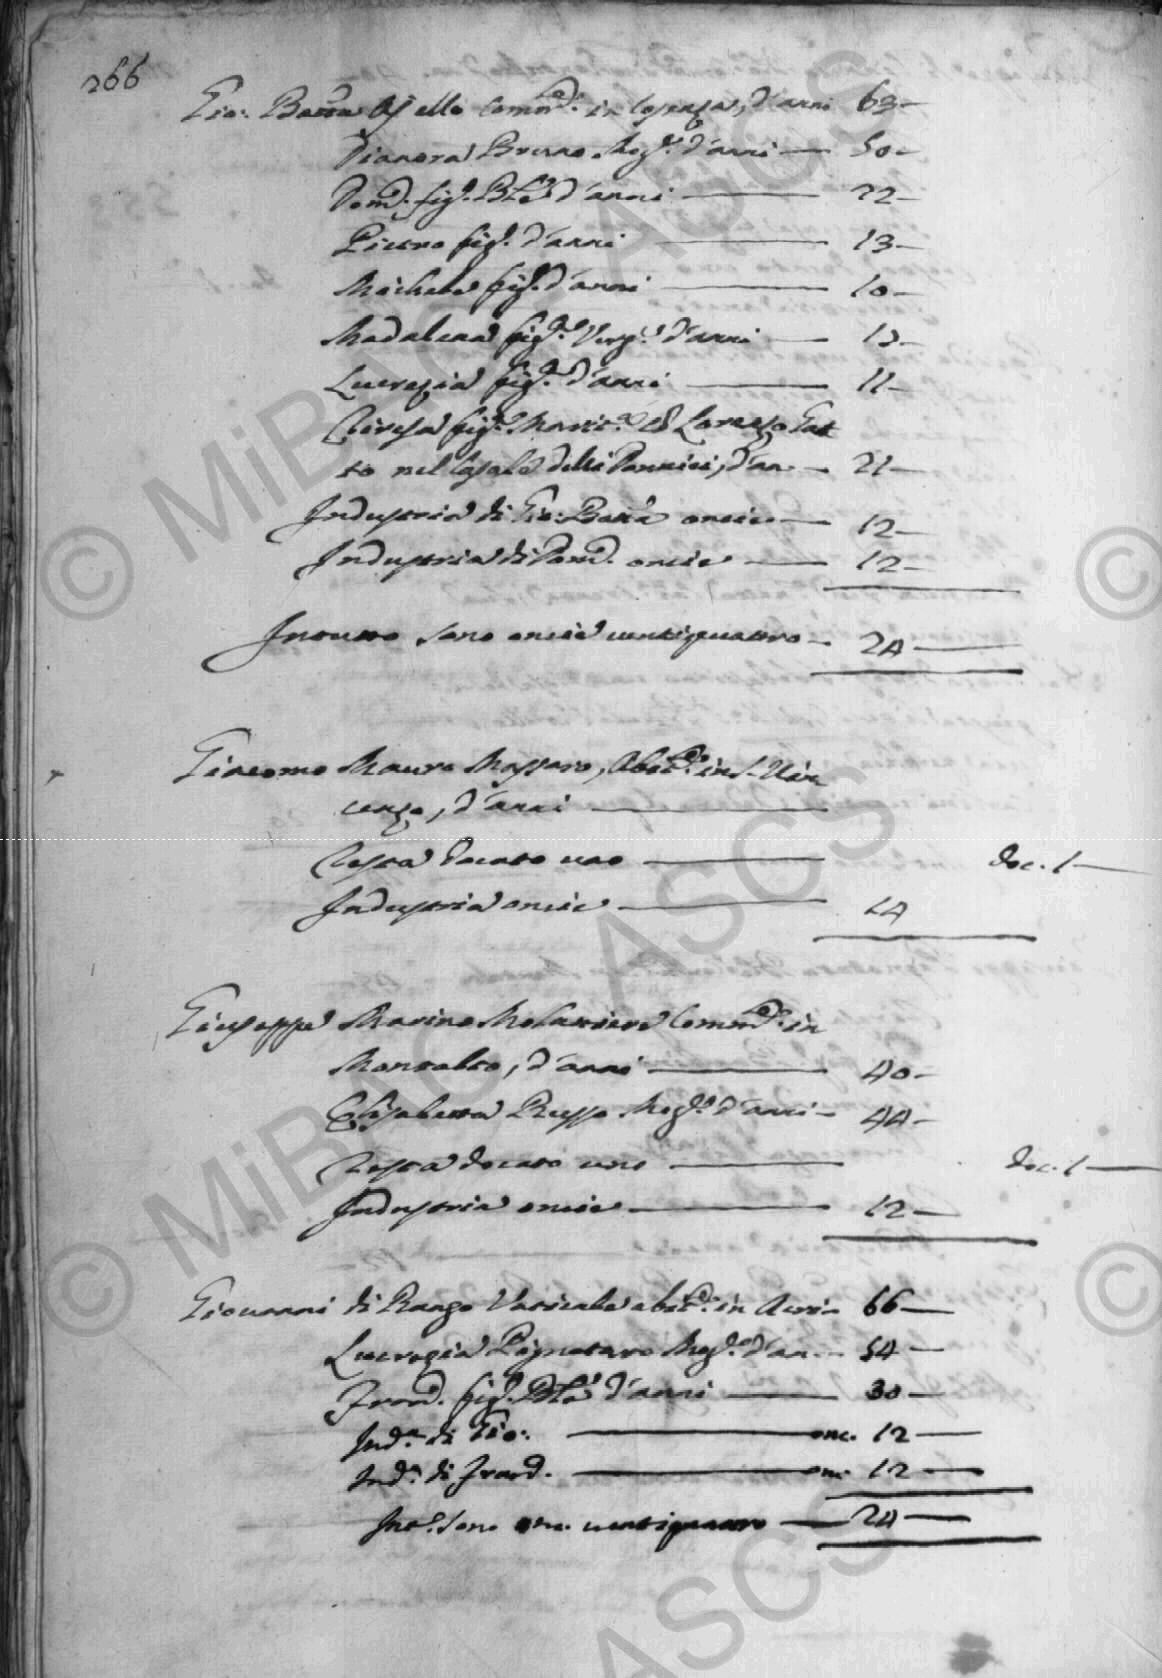 266
Gio: Batta Ajello Commte in Cosenza, d'anni 63
Dianora Bruno Mog.e d'anni 50
Dom.o fig.o d'anni 22
Pietro fig.o d'anni 13
Michele fig.o d'anni 10
Madalena fig.a Verg.e d'anni 13
Lucrezia fig.a d'anni 11
Teresa fig.a Marit.a a Lorenzo Gat
to nel Casale delli Pannici, d'an. 21
Industria di Gio: Batta oncie 12
Industria di Dom.o oncie 12
Intutto sono oncie ventiquattro 24
Giacomo Mauro Massaro, abit.e in S. Vin
cenzo, d'anni
Testa docato uno doc. 1
Industria oncie 14
Giuseppe Marino Commte in
Montalto, d'anni 40
Elisabetta Russo Mog.e d'anni 44
Testa docato uno doc. 1
Industria oncie 12
Giovanni di Ranzo Vaticale abit.e in Acri 66
Lucrezia Pignataro Mog.e d'an. 54
Fran.o fig.o d'anni 30
Ind.a di Gio: onc. 12
Ind.a di Fran.o onc. 12
Int.o sono onc. ventiquattro 24
© MiBAC - ASCS ©
© MiBAC - ASCS ©
ASCS